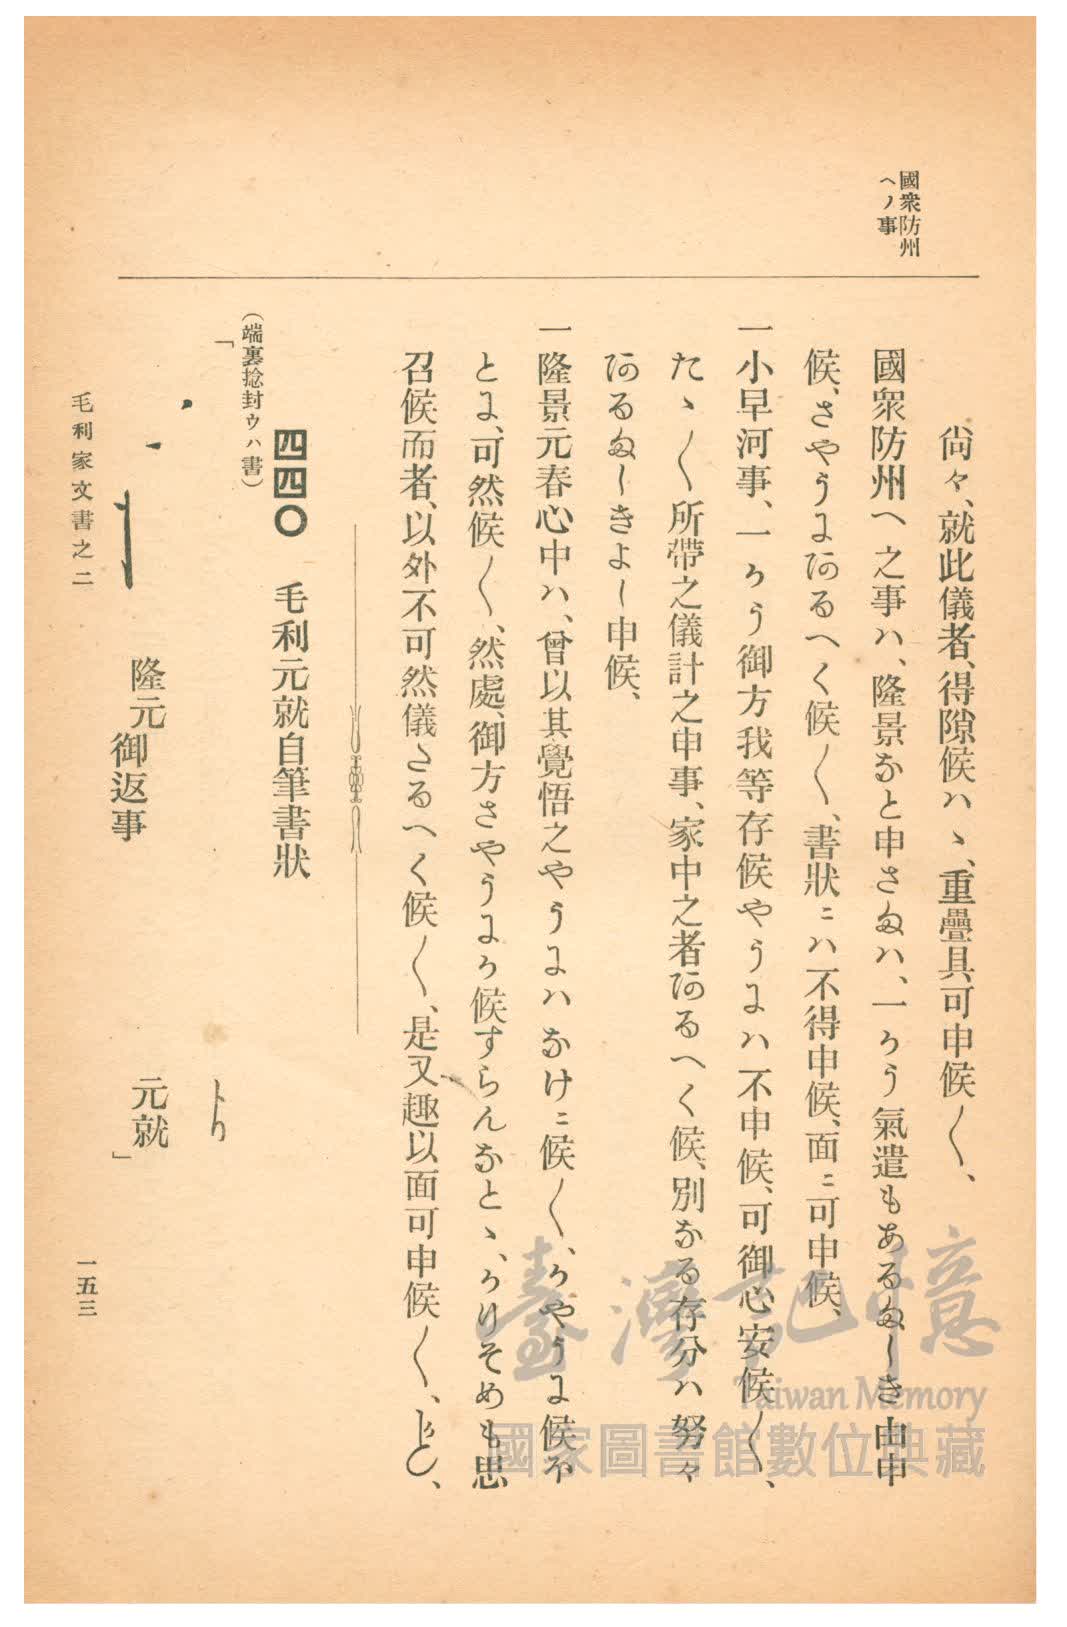 國衆防州
ヘノ事
尙々、就此儀者、得隙候ハヽ、重疊具可申候〳〵、
國衆防州ヘ之事ハ、隆景なと申さぬハ、一かう氣遣もあるましき由申
候、さやうにあるへく候〳〵、書狀ニハ不得申候、面ニ可申候、
一小早河事、一かう御方我等存候やうにハ不申候、可御心安候〳〵、
たゝ〳〵所帶之儀計之申事、家中之者あるへく候、別なる存分ハ努々
あるましきよし申候、
一隆景元春心中ハ、曾以其覺悟之やうにハなけニ候〳〵、かやうに候ホ
とに、可然候〳〵、然處、御方さやうにか候すらんなとゝ、かりそめも思
召候而者、以外不可然儀さるへく候〳〵、是又趣以面可申候〳〵、
四四〇 毛利元就自筆書狀
(端裏捻封ウハ書)
「
隆元 元就
御返事 」
毛利家文書之二 一五三
臺灣記憶
Taiwan Memory
國家圖書館數位典藏